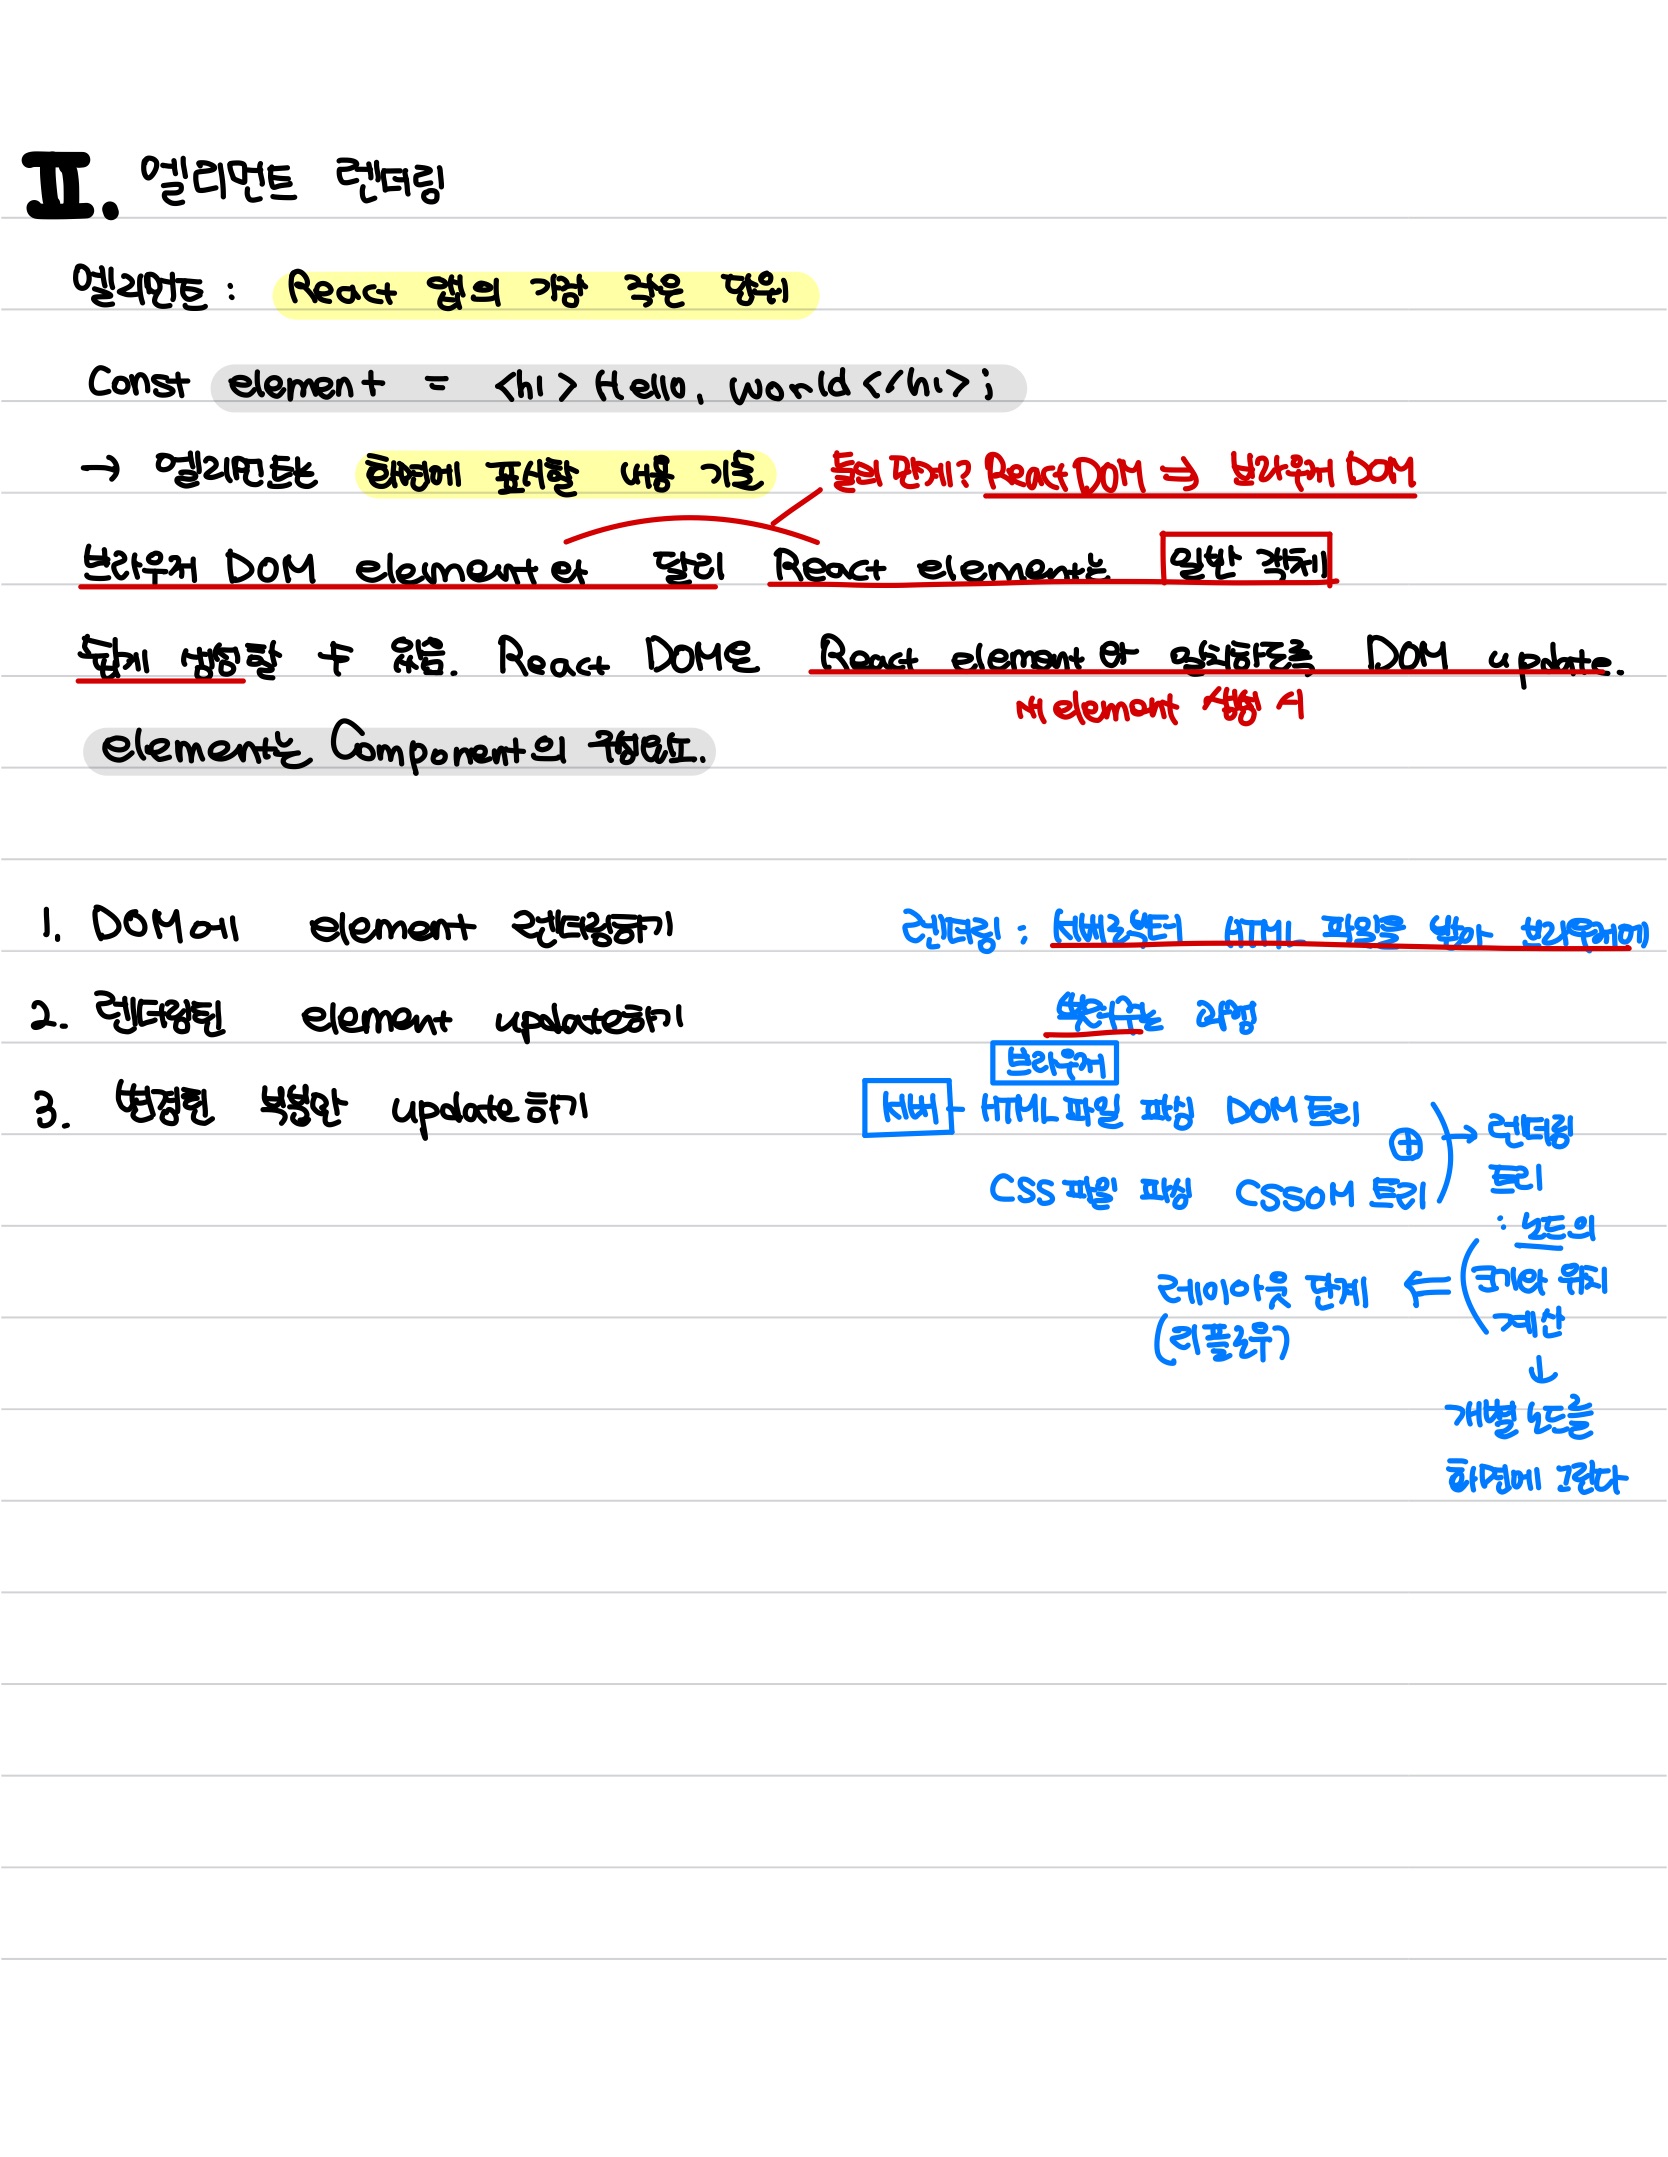 II. 엘리먼트 렌더링
엘리먼트 : React 앱의 가장 작은 단위
Const element = <h1> Hello, world </h1>;
→ 엘리먼트는 화면에 표시할 내용 기술
둘의 관계? React DOM ⇒ 브라우저 DOM
브라우저 DOM element와 달리 React element는 일반 객체
쉽게 생성할 수 있음. React DOM은 React element와 일치하도록 DOM update.
새 element 생성 시
element는 Component의 구성요소.
1. DOM에 element 렌더링하기
2. 렌더링된 element update하기
3. 변경된 부분만 update하기
렌더링 : 서버로부터 HTML 파일을 받아 브라우저에
보여주는 과정
브라우저
서버 - HTML 파일 파싱 DOM 트리
CSS 파일 파싱 CSSOM 트리
⊕ → 렌더링
트리
: 노드의
크기와 위치
계산
⇐ 레이아웃 단계
(리플로우)
↓
개별 노드를
화면에 그린다